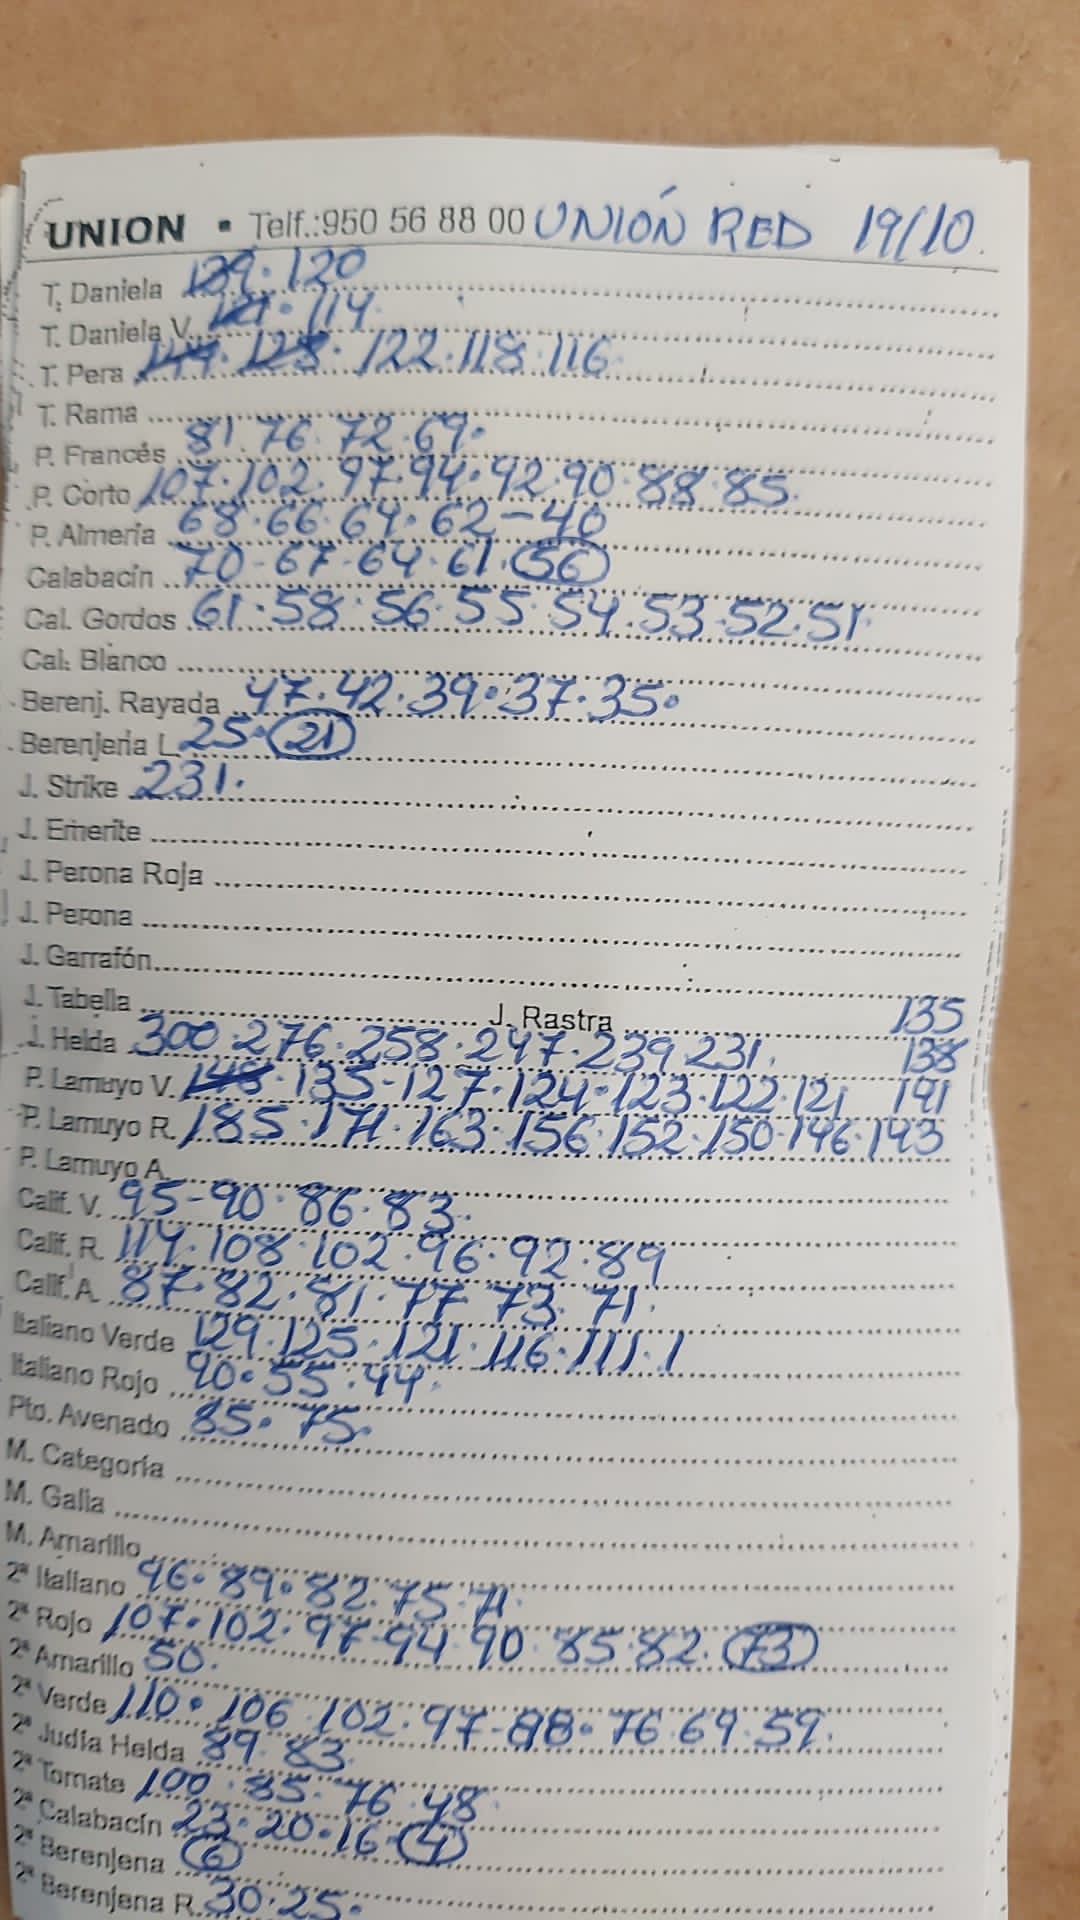 UNION • Telf.:950 56 88 00 UNIÓN RED 19/10.
T. Daniela 129. 120
T. Daniela V. 121. 114.
T. Pera 144. 128. 122. 118. 116
T. Rama
P. Francés 81. 76. 72. 69.
P. Corto 107. 102. 97. 94. 92. 90. 88. 85.
P. Almería 68. 66. 64. 62-40
Calabacín 70-67-64. 61. 56
Cal. Gordos 61. 58. 56. 55. 54. 53. 52. 51.
Cal. Blanco
Berenj. Rayada 47. 42. 39. 37. 35.
Berenjena L. 25. 21
J. Strike 231.
J. Emerite
J. Perona Roja
J. Perona
J. Garrafón
J. Tabella J. Rastra 135
J. Helda 300. 276. 258. 247. 239. 231. 138
P. Lamuyo V. 148. 135-127. 124. 123. 122. 121 141
P. Lamuyo R. 185. 171. 163. 156. 152. 150-146. 143
P. Lamuyo A.
Calif. V. 95-90. 86. 83.
Calif. R. 114. 108. 102. 96. 92. 89
Calif. A. 87. 82. 81. 77. 73. 71.
Italiano Verde 129. 125. 121. 116. 111. 1
Italiano Rojo 90. 55. 44.
Pto. Avenado 85. 75.
M. Categoría
M. Galia
M. Amarillo
2ª Italiano 96. 89. 82. 75-71.
2ª Rojo 107. 102. 97-94 90. 85. 82. 73
2ª Amarillo 50.
2ª Verde 110. 106 102. 97-88. 76 69. 59.
2ª Judía Helda 89. 83.
2ª Tomate 100. 85. 76. 48.
2ª Calabacín 23. 20. 16. 4
2ª Berenjena 6
2ª Berenjena R. 30. 25.